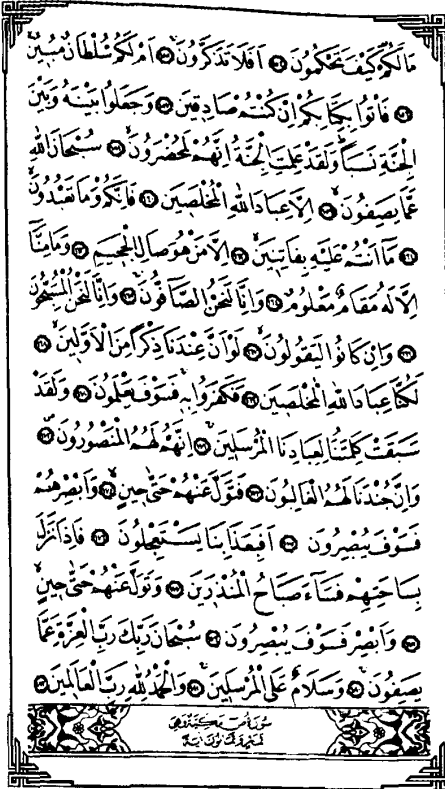 مَا لَكُمْ كَيْفَ تَحْكُمُونَ ۝ اَفَلَا تَذَكَّرُونَ ۝ اَمْ لَكُمْ سُلْطَانٌ مُبِينٌ
۝ فَأْتُوا بِكِتَابِكُمْ اِنْ كُنْتُمْ صَادِقِينَ ۝ وَجَعَلُوا بَيْنَهُ وَبَيْنَ
الْجِنَّةِ نَسَبًا وَلَقَدْ عَلِمَتِ الْجِنَّةُ اِنَّهُمْ لَمُحْضَرُونَ ۝ سُبْحَانَ اللّٰهِ
عَمَّا يَصِفُونَ ۝ اِلَّا عِبَادَ اللّٰهِ الْمُخْلَصِينَ ۝ فَاِنَّكُمْ وَمَا تَعْبُدُونَ
۝ مَا اَنْتُمْ عَلَيْهِ بِفَاتِنِينَ ۝ اِلَّا مَنْ هُوَ صَالِ الْجَحِيمِ ۝ وَمَا مِنَّا
اِلَّا لَهُ مَقَامٌ مَعْلُومٌ ۝ وَاِنَّا لَنَحْنُ الصَّافُّونَ ۝ وَاِنَّا لَنَحْنُ الْمُسَبِّحُونَ
۝ وَاِنْ كَانُوا لَيَقُولُونَ ۝ لَوْ اَنَّ عِنْدَنَا ذِكْرًا مِنَ الْاَوَّلِينَ ۝
لَكُنَّا عِبَادَ اللّٰهِ الْمُخْلَصِينَ ۝ فَكَفَرُوا بِهِ فَسَوْفَ يَعْلَمُونَ ۝ وَلَقَدْ
سَبَقَتْ كَلِمَتُنَا لِعِبَادِنَا الْمُرْسَلِينَ ۝ اِنَّهُمْ لَهُمُ الْمَنْصُورُونَ ۝
وَاِنَّ جُنْدَنَا لَهُمُ الْغَالِبُونَ ۝ فَتَوَلَّ عَنْهُمْ حَتّٰى حِينٍ ۝ وَاَبْصِرْهُمْ
فَسَوْفَ يُبْصِرُونَ ۝ اَفَبِعَذَابِنَا يَسْتَعْجِلُونَ ۝ فَاِذَا نَزَلَ
بِسَاحَتِهِمْ فَسَاءَ صَبَاحُ الْمُنْذَرِينَ ۝ وَتَوَلَّ عَنْهُمْ حَتّٰى حِينٍ
۝ وَاَبْصِرْ فَسَوْفَ يُبْصِرُونَ ۝ سُبْحَانَ رَبِّكَ رَبِّ الْعِزَّةِ عَمَّا
يَصِفُونَ ۝ وَسَلَامٌ عَلَى الْمُرْسَلِينَ ۝ وَالْحَمْدُ لِلّٰهِ رَبِّ الْعَالَمِينَ ۝
سورة ص مكية وهى
ثمان وثمانون آية